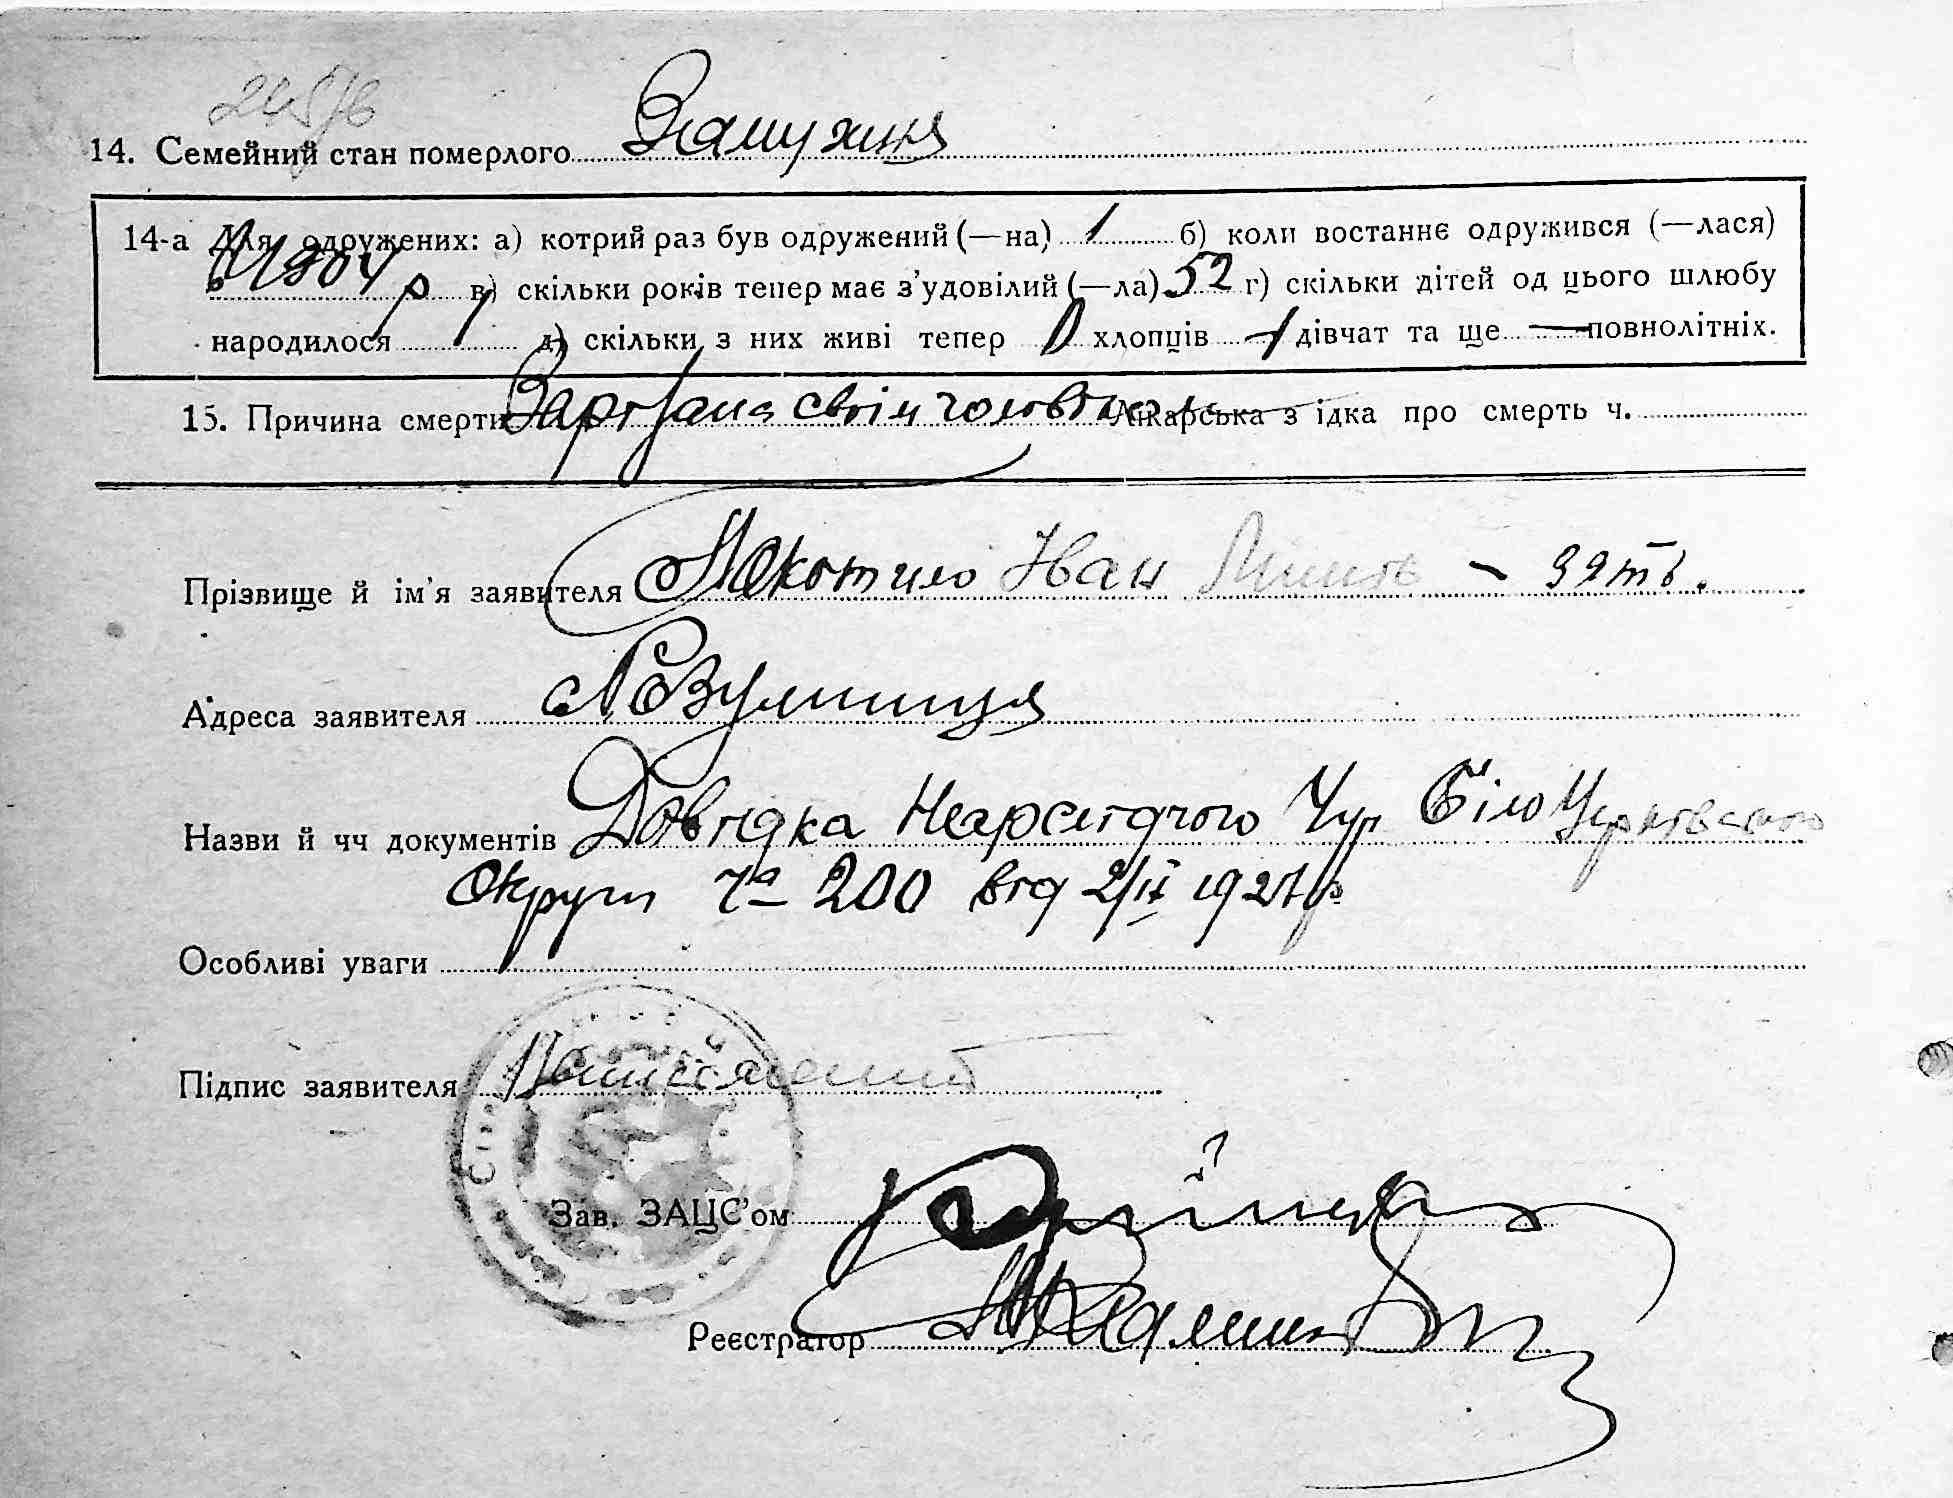 14. Семейний стан померлого Замужня
14-а Для одружених: а) котрий раз був одружений (—на) 1 б) коли востаннє одружився (—лася)
в 1904 р в) скільки років тепер має з’удовілий (—ла) 52 г) скільки дітей од цього шлюбу
народилося 1 д) скільки з них живі тепер хлопців 1 дівчат та ще — повнолітніх.
15. Причина смерти Зарізана своїм чоловіком Лікарська з ідка про смерть ч.
Прізвище й ім’я заявителя Локотило Іван — зять.
Адреса заявителя
Назви й чч документів Довідка Нарслідчого Біло Церківської
Округи ч 200 від 2/IX 1927 р
Особливі уваги
Підпис заявителя
Зав. ЗАЦС’ом
Реєстратор